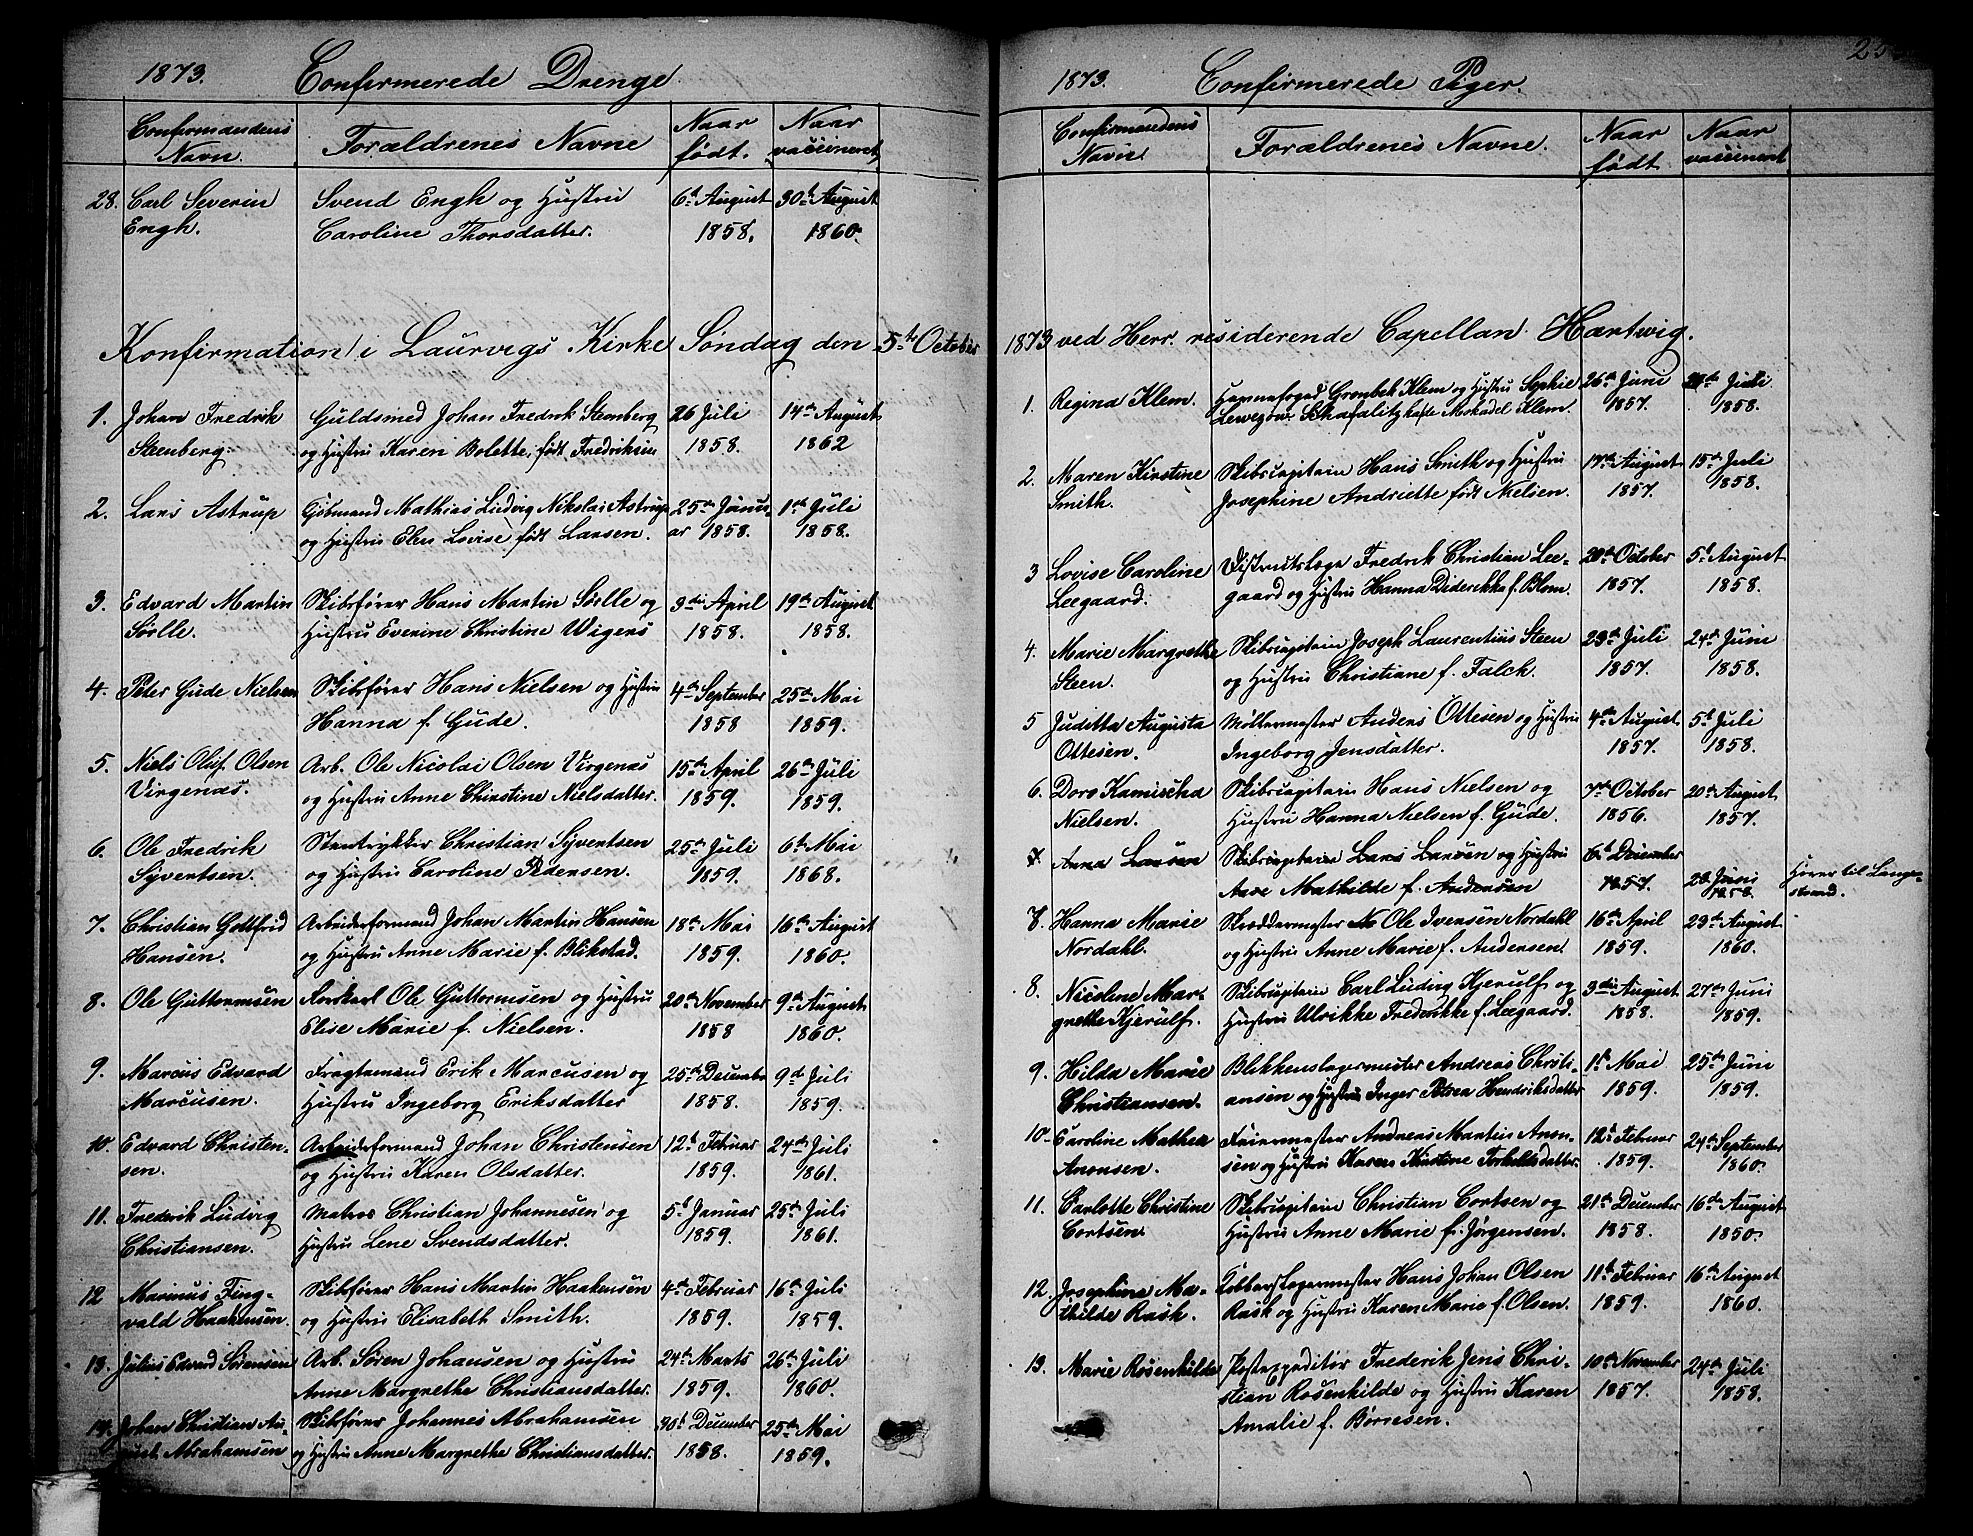 1873. Confirmerede Drenge.
Confirmandens Navn. Forældrenes Navne Naar født. Naar vaccineret
28. Carl Severin Svend Engh og Hustru 6te August 30te August
Engh. Caroline Thorsdatter. 1858. 1860.
Konfirmation i Laurvigs Kirke Søndag den 5te October
1. Johan Fredrik Guldsmed Johan Fredrik Steenberg 26 Juli 14de August
Steenberg. og Hustru Karen Bolette, født Fredriksen 1858. 1862
2. Lars Astrup Kjøbmand Mathias Ludvig Nikolai Astrup 25de Janu- 1ste Juli
og Hustru Elen Lovise født Larsen. ar 1858. 1858.
3. Edvard Martin Skibsfører Hans Martin Sølle og 3die April 19de August
Sølle. Hustru Everine Christine Wigers 1858. 1858.
4. Peter Gude Nielsen Skibsfører Hans Nielsen og Hustru 4de September 25de Mai
Hanna f. Gude. 1858 1859.
5. Niels Oluf Olsen Arb. Ole Nicolai Olsen Virgenæs 15de April 26de Juli
Virgenæs. og Hustru Anne Christine Nielsdatter. 1859. 1859.
6. Ole Fredrik Stentrykker Christian Syvertsen 25de Juli 6te Mai
Syvertsen. og Hustru Caroline Pedersen. 1859. 1868.
7. Christian Gottfrid Arbeiderformand Johan Martin Hansen 18de Mai 16de August
Hansen. og Hustru Anne Marie f. Blikstad. 1859. 1860.
8. Ole Guttormsen Ole Guttormsen og Hustru 20de November 9de August
Elise Marie f. Nielsen. 1858 1860.
9. Marcus Edvard Fragtemand Erik Marcusen og 25de December 9de Juli
Marcusen. Hustru Ingeborg Eriksdatter 1858. 1859.
10. Edvard Christen- Arbeiderformand Johan Christensen 12te Februar 24de Juli
sen. og Hustru Karen Olsdatter. 1859. 1861.
11. Frederik Ludvig Matros Christian Johannesen og 5te Januar 25de Juli
Christiansen. Hustru Lene Svendsdatter. 1859. 1861.
12 Marinus Fing- Skibsfører Hans Martin Haakensen 4de Februar 16de Juli
vald Haakensen. og Hustru Elisabeth Smith. 1859. 1859.
13. Julius Edvard Sørensen Arb. Søren Johansen og Hustru 24de Marts 26de Juli
Anne Margrethe Christiansdatter. 1859. 1860.
14. Johan Christian Au- Skibsfører Johannes Abrahamsen 30te December 25de Mai
gust Abrahamsen og Hustru Anne Margrethe Christiansdatter. 1858. 1859.
1873. Confirmerede Piger.
Confirmandens Navn. Forældrenes Navne. Naar født Naar vaccineret
1873 ved Herr. residerende Capellan Hartwig.
1. Regina Klem. Havnefoged Grønbek Klem og Hustru Sophie 26de Juni Juli
Klem. 1857. 1858.
2. Maren Kirstine Skibscapitain Hans Smith og Hustru 17de August 15de Juli
Smith. Josephine Andriette født Nielsen. 1857. 1858.
3 Lovise Caroline Districtslæge Fredrik Christian Lee- 20de October 5te August
Leegaard. gaard og Hustru Hanna Diderikke f. Blom. 1857. 1858.
4. Marie Margrethe Skibscapitain Joseph Laurentius Steen 23de Juli 24de Juni
Steen. og Hustru Christiane f. Falck. 1857. 1858.
5 Juditta Augusta Møllermester Anders Ottesen og Hustru 4de August 5te Juli
Ottesen. Ingeborg Jensdatter. 1857. 1858.
6. Dora Kamischa Skibscapitain Hans Nielsen og 7de October 20de August
Nielsen. Hustru Hanna Nielsen f. Gude. 1856. 1857.
7. Anna Larsen Skibscapitain Lars Larsen og Hustru 6te December
Aase Mathilde f. Andersen 1857. 28 Juni 1858. Hører til Lange-
strand.
7. Hanna Marie Skræddermester Ole Iversen Nordahl 16de April 29de August
Nordahl. og Hustru Anne Marie f. Andersen. 1859. 1860.
8. Nicoline Mar- Skibscapitain Carl Ludvig Kjerulf og 3die August 27de Juni
grethe Kjerulf. Hustru Ulrikke Frederikke f. Leegaard. 1858. 1859.
9. Hilda Marie Blikkenslagermester Andreas Christi- 1ste Mai 25de Juni
Christiansen. ansen og Hustru Inger Petrea Hendriksdatter 1859. 1859.
10. Caroline Mathea Feiermester Andreas Martin Aron- 12te Februar 24de September
Aronsen. sen og Hustru Karen Kirstine Torkelsdatter. 1859. 1860.
11. Carlotte Christine Skibscapitain Christian Cortsen og 21de December 16de August
Cortsen. Hustru Anne Marie f. Jørgensen. 1858. 1850.
12. Josephine Ma- Kobberslagermester Hans Johan Olsen 11te Februar 16de August
thilde Rask. Rask og Hustru Karen Marie f. Olsen. 1859. 1860.
13. Marie Rosenkilde Postexpeditør Frederik Jens Chri- 10de November 24de Juli
stian Rosenkilde og Hustru Karen 1857. 1858.
Amalie f. Børresen.